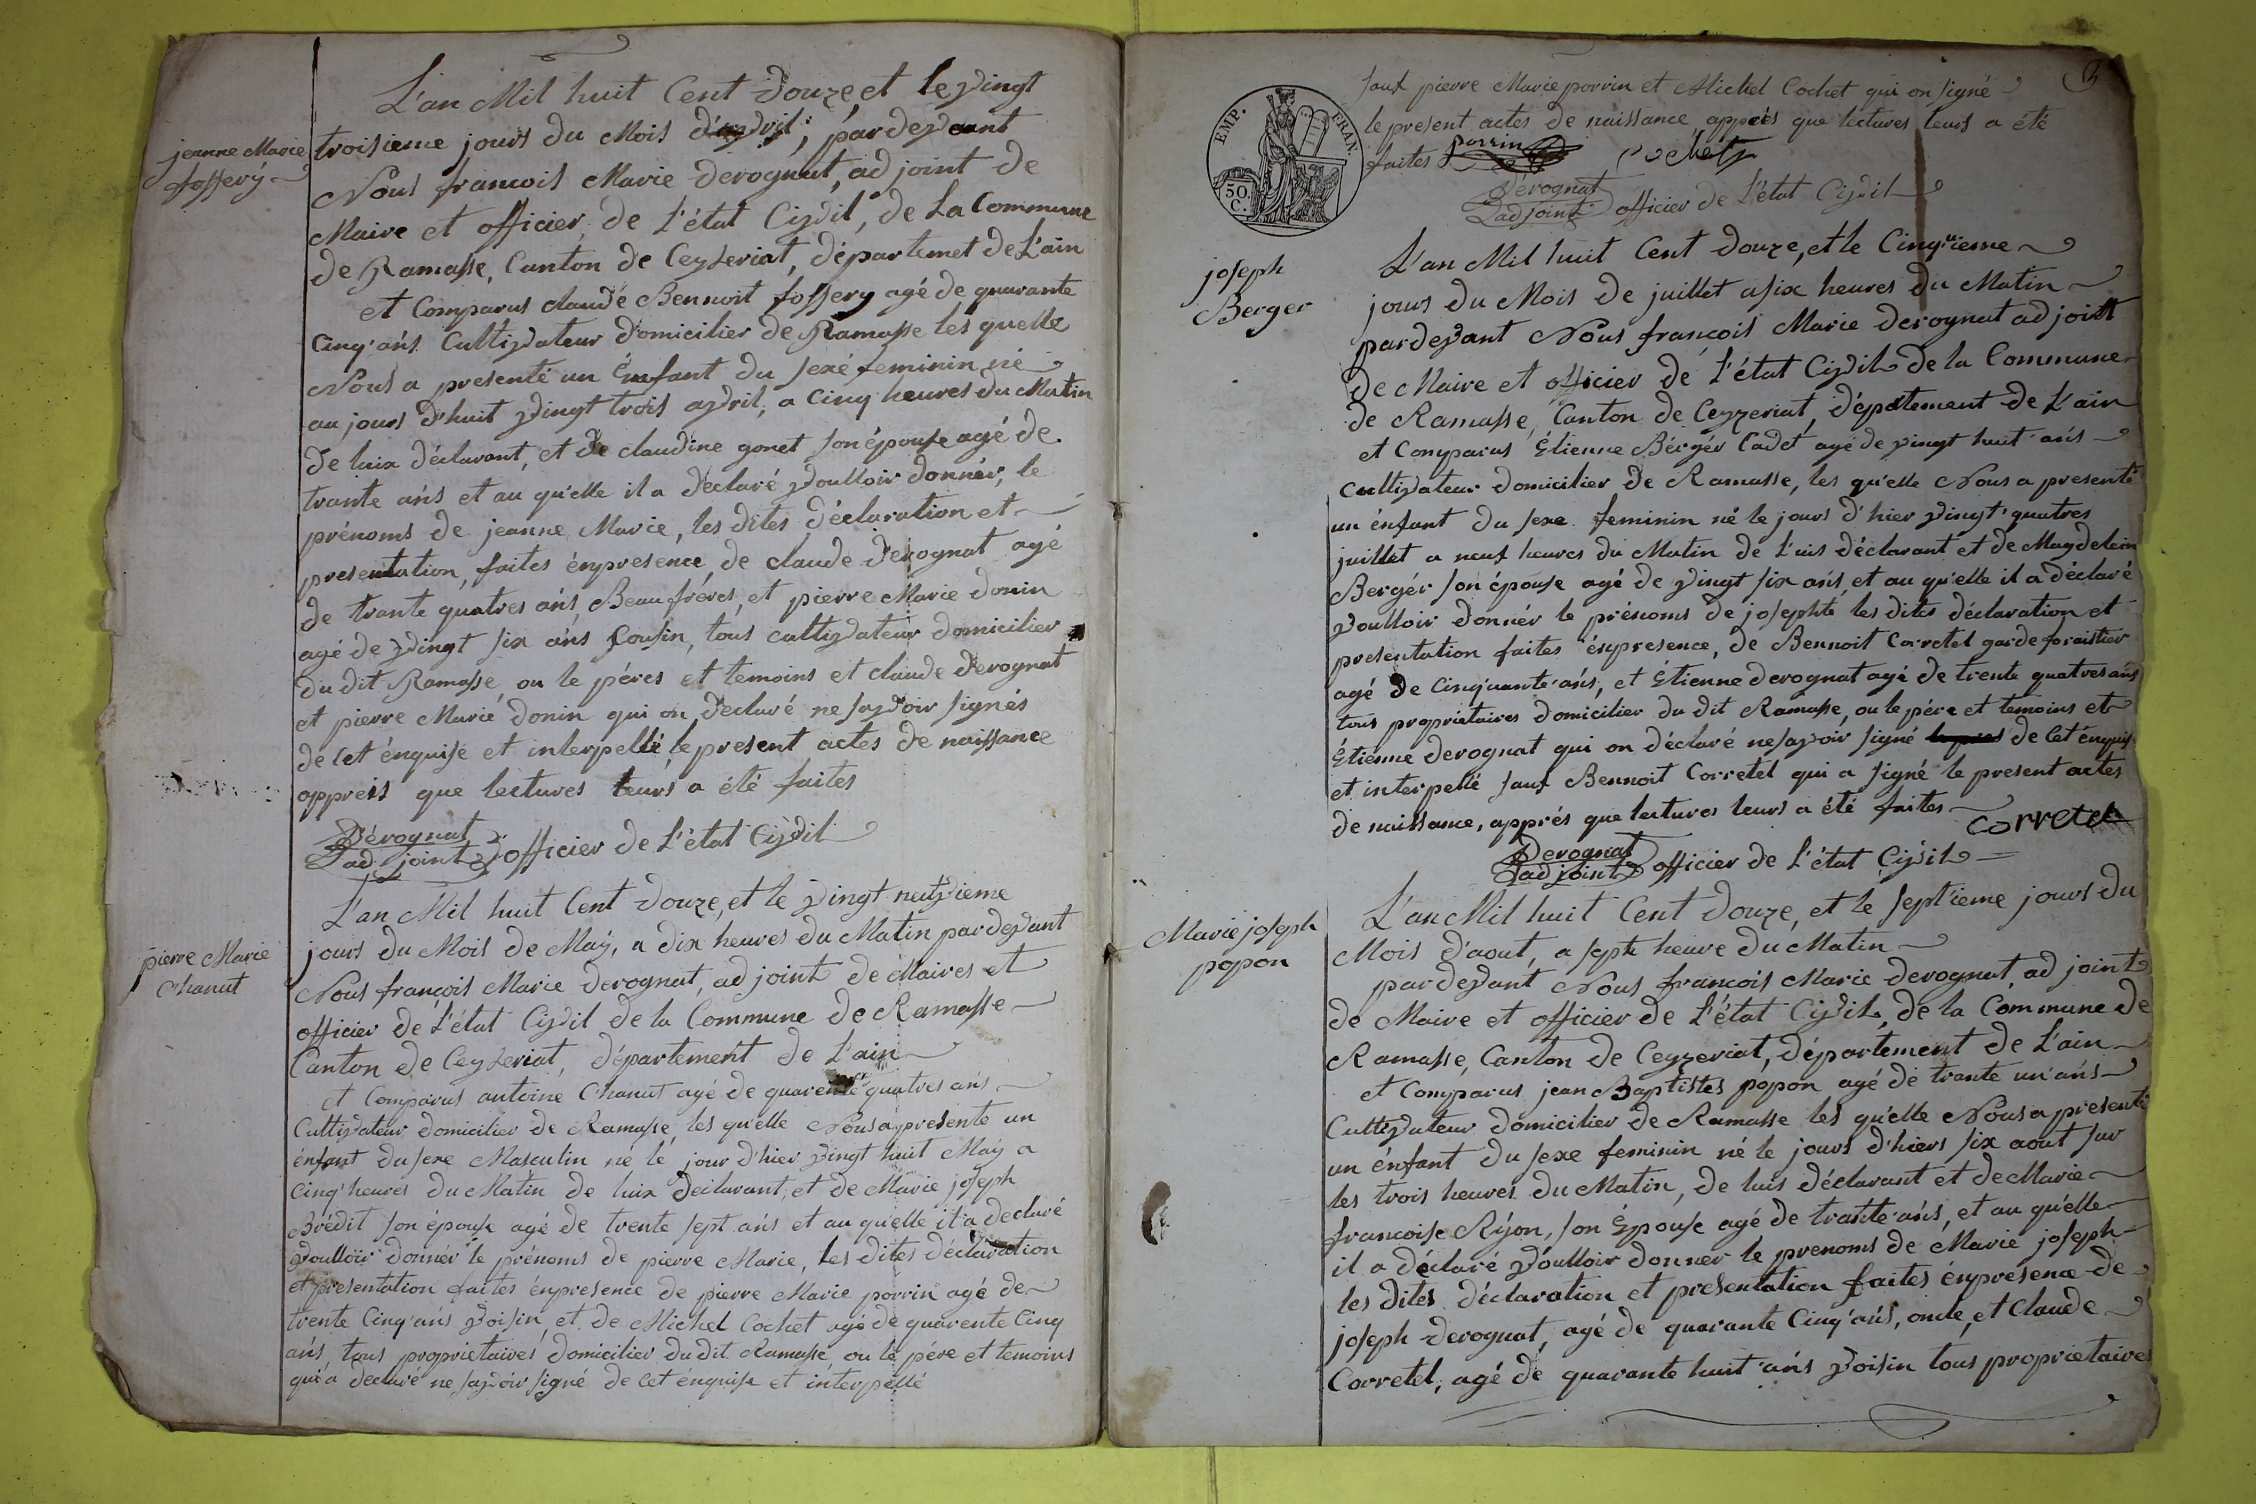 L'an Mil huit Cent Douze, et le Vingt
jeanne Marie
foffery
troisieme jours du Mois d'avril, pardevant
Nous francois Marie Derognat, ad joint de
Maire et officier, de L'état Civil, de La Commune
de Ramasse, Canton de Ceyzeriat, départemet de L'ain
et Comparus claude Bennoit foffery agé de quarante
Cinq'ans Cultivateur Domicilier de Ramasse les quelle
Nous a presenté un Enfant du sexe feminin né
au jours d'huit Vingt trois avril, a Cinq heures du Matin
de luix déclarant, et de claudine gonet son épouse agé de
trante ans et au qu'elle il a declaré Voulloir donnér, le
prénoms de jeanne Marie, les dites déclaration et
presentation, faites énpresence de claude derognat agé
de trante quatres ans, Beaufréres, et pierre Marie donin
agé de Vingt six ans Cousin, tous cultivateur domicilier
du dit Ramasse, ou le péres et temoins et claude derognat
et pierre Marie donin qui on declaré ne savoir signés
de Cet énquise et interpellé le present actes de naissance
apprers que lectures leurs a été faites
Dérognat
ad joint officier de L'état Civil
L'an Mil huit Cent Douze, et le Vingt neuvieme
pierre Marie
Chanut
jours du Mois de May, a dix heures du Matin pardevant
Nous françois Marie derognat, ad joint de Maires et
officier de L'état Civil de la Commune de Ramasse
Canton de Ceyzeriat, département de L'ain
et Comparus antoine Chanut agé de quarente quatres ans
Cultivateur domicilier de Ramasse, les qu'elle Nous a presente un
énfant du sexe Masculin né le jour d'hier Vingt huit May a
Cinq'heures du Matin de luix declarant, et de Marie joseph
Brédit son épouse agé de trente sept ans et au qu'elle il a declaré
Voulloir donnér le prénoms de pierre Marie, les dites déclaration
et presentation faites énpresence de pierre Marie porrin agé de
trente Cinq'ans Voisin, et de Michel Cochet agé de quarente Cinq
ans, tous proprietaires domicilier du dit Ramasse, ou le pére et temoins
qui a declaré ne savoir signé de Cet énquise et interpellé
sauf pierre Marie porrin et Michel Cochet qui on signé
le present actes de naissance, apprés que lectures leurs a été
faites porrin Cochet
EMP. FRAN.
50 C.
Dérognat
ad joint officier de L'état Civil
joseph
Berger
L'an Mil huit Cent Douze, et le Cinquieme
jours du Mois de juillet a six heures du Matin
pardevant Nous françois Marie derognat ad joint
de Maire et officier de L'état Civil de la Commune
de Ramasse, Canton de Ceyzeriat, département de L'ain
et Comparus Etienne Bérgér Cadet agé de Vingt huit ans
Cultivateur domicilier de Ramasse, les qu'elle Nous a presenté
un énfant du sexe feminin né le jours d'hier Vingt'quatres
juillet a neuf heures du Matin de Luis déclarant et de Magdelein
Bergér son épouse agé de Vingt six ans, et au qu'elle il a déclaré
Voulloir donnér le prénoms de josephte les dites déclaration et
presentation faites énpresence, de Bennoit Corretel garde foraistier
agé de Cinquante'ans, et Etienne derognat agé de trente quatres ans
tous proprietaires domicilier du dit Ramasse, ou le pére et temoins et
Etienne derognat qui on déclaré ne savoir signé de Cet énquis
et interpellé sauf Bennoit Corretel qui a signé le present actes
de naissance, apprés que lectures leurs a été faites Corretel
Derognat
ad joint officier de L'état Civil
L'an Mil huit Cent Douze, et le septieme jours du
Marie joseph
popon
Mois d'aout, a sept heure du Matin
pardevant Nous francois Marie derognat, ad joint
de Maire et officier de L'état Civil, de la Commune de
Ramasse, Canton de Ceyzeriat, département de L'ain
et Comparus jean Baptistes popon agé de trante un'ans
Cultivateur domicilier de Ramasse les qu'elle Nous a presenté
un énfant du sexe feminin né le jours d'hiers six aout sur
les trois heures du Matin, de luis déclarant et de Marie
francoise Rijon, son Epouse agé de trante'ans, et au qu'elle
il a déclaré Voulloir donner le prenoms de Marie joseph
les dites déclaration et presentation faites énpresence de
joseph derognat, agé de quarante Cinq'ans, oncle, et Claude
Corretel, agé de quarante huit'ans Voisin tous proprietaires